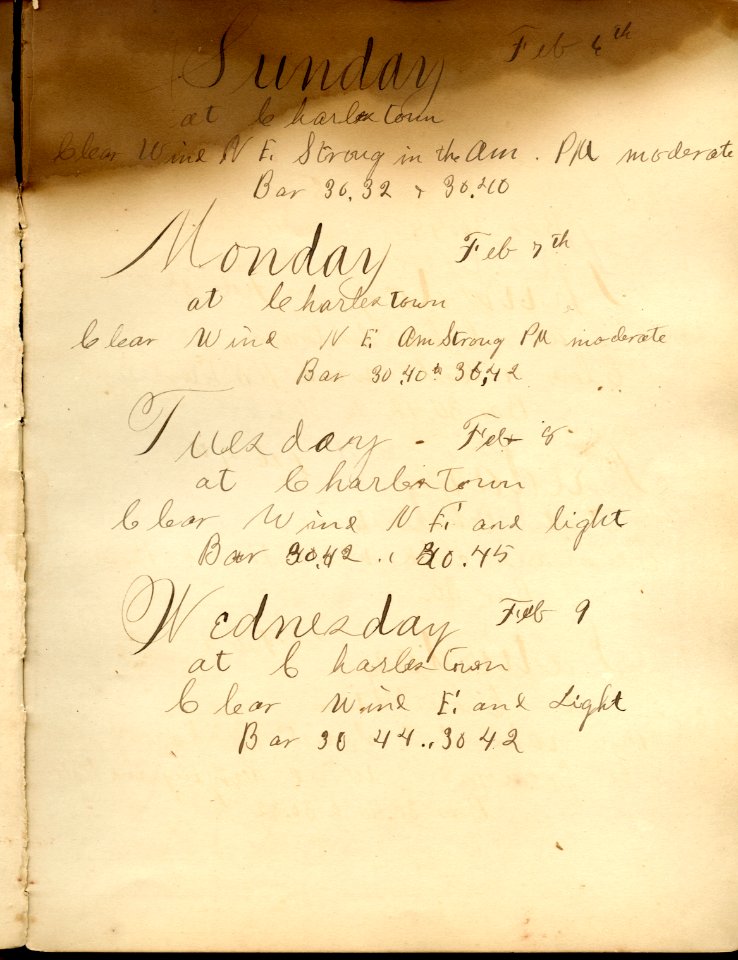 Sunday Feb 6th
at Charlestown
Clear Wind N E. Strong in the Am. PM moderate
Bar 30.32 & 30.40
Monday Feb 7th
at Charlestown
Clear Wind N E. Am Strong PM moderate
Bar 30.40 to 30.42
Tuesday - Feb 8
at Charlestown
Clear Wind N E. and light
Bar 30.42 .. 30.45
Wednesday Feb 9
at Charlestown
Clear Wind E. and Light
Bar 30 44 .. 30 42